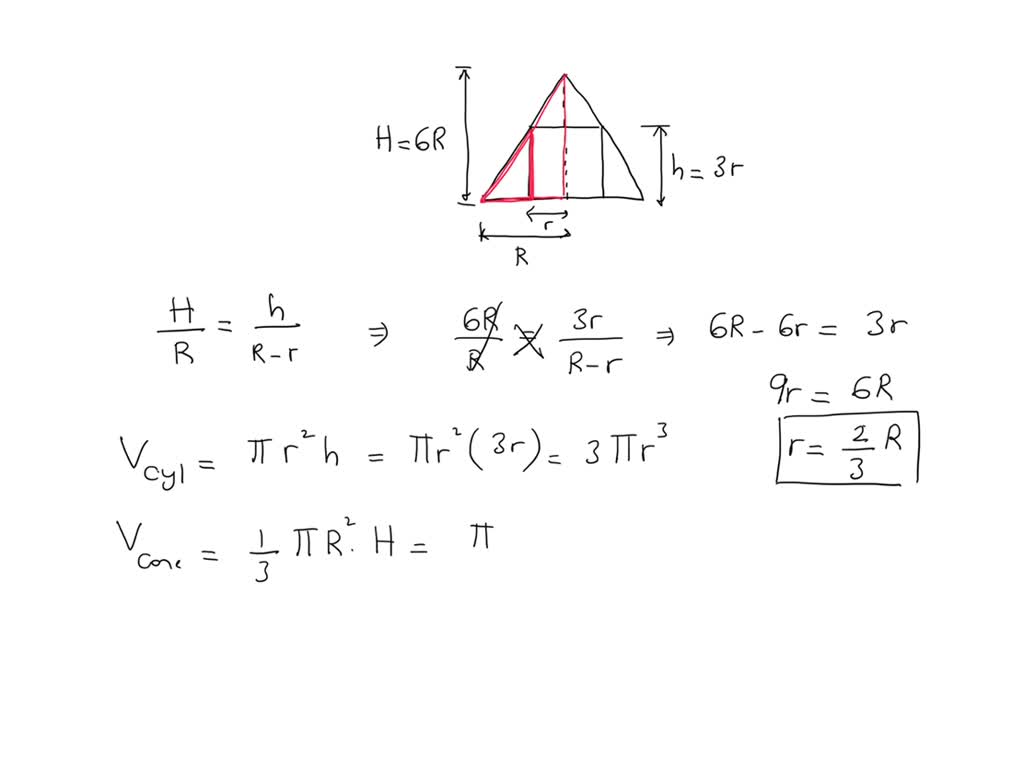 H = 6R
h = 3r
r
R
H/R = h/(R-r) ⇒ 6R/R = 3r/(R-r) ⇒ 6R - 6r = 3r
9r = 6R
r = 2/3 R
V_cyl = πr²h = πr²(3r) = 3πr³
V_cone = 1/3 πR². H = π